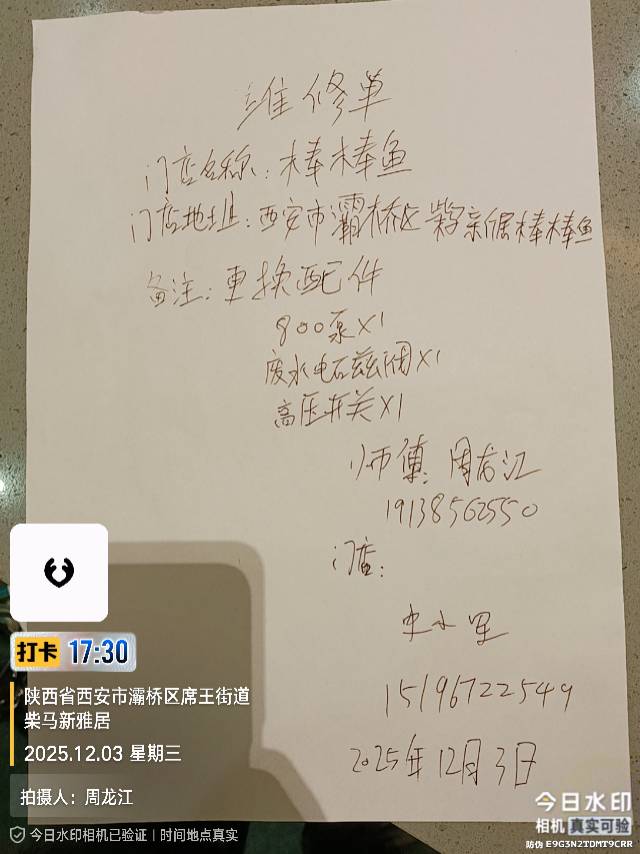 维修单
门店名称：棒棒鱼
门店地址：西安市灞桥区柴马新居棒棒鱼
备注：更换配件
800泵X1
废水电磁阀X1
高压开关X1
师傅：周龙江
19138562550
门店：
史小里
15196722549
2025年12月3日
打卡 17:30
陕西省西安市灞桥区席王街道
柴马新雅居
2025.12.03 星期三
拍摄人：周龙江
今日水印相机已验证｜时间地点真实
今日水印
相机 真实可验
防伪 E9G3N2TDMT9CRR